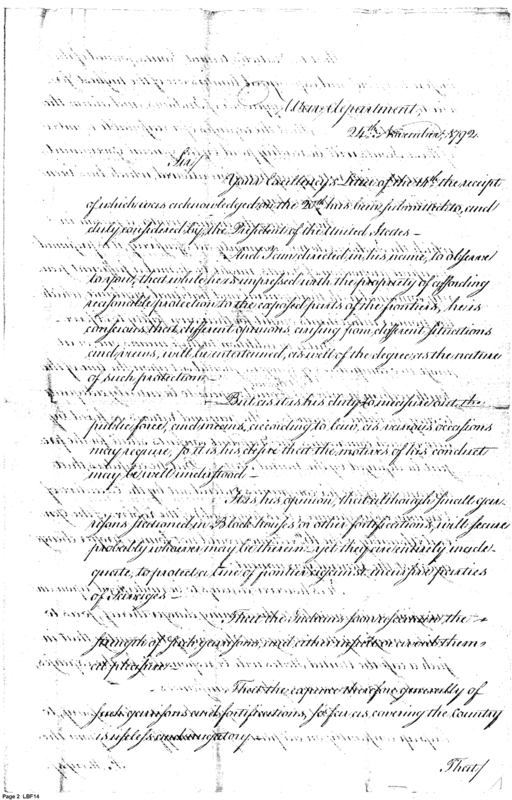 War department,
24th November, 1792
Sir/
Your Excellency's Letter of the 14th the receipt
of which was acknowledged on the 20th has been submitted to, and
duly considered by the President of the United States—
And I am directed in his name, to observe
to you, that while he is impressed with the propriety of affording
reasonable protection to the exposed parts of the frontiers, he is
conscious that different opinions, arising from different situations
and views, will be entertained, as well of the degree as the nature
of such protection—
But as it is his duty to the
public force, and means, according to law, as various occasions
may require, so it is his desire that the motives of his conduct
may be well understood—
It is his opinion, that although small gar-
risons stationed in Block houses or other fortifications, will secure
probably whoever may be therein yet they are entirely inade-
quate, to protect a line of frontier against incursive parties
of Savages—
That the Indians soon the
strength of such garrisons, and either or avoid them
at pleasure—
That the expence therefore generally of
such garrisons and fortifications, so far as covering the Country
is useless and nugatory—
That/
Page 2 LBF14